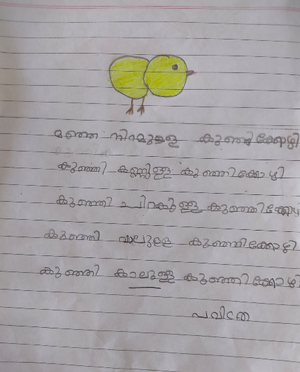 മഞ്ഞ നിറമുള്ള കുഞ്ഞിക്കോഴി
കുഞ്ഞി കണ്ണുള്ള കുഞ്ഞിക്കോഴി
കുഞ്ഞി ചിറകുള്ള കുഞ്ഞിക്കോഴി
കുഞ്ഞി വാലുള്ള കുഞ്ഞിക്കോഴി
കുഞ്ഞി കാലുള്ള കുഞ്ഞിക്കോഴി
പവിത്ര